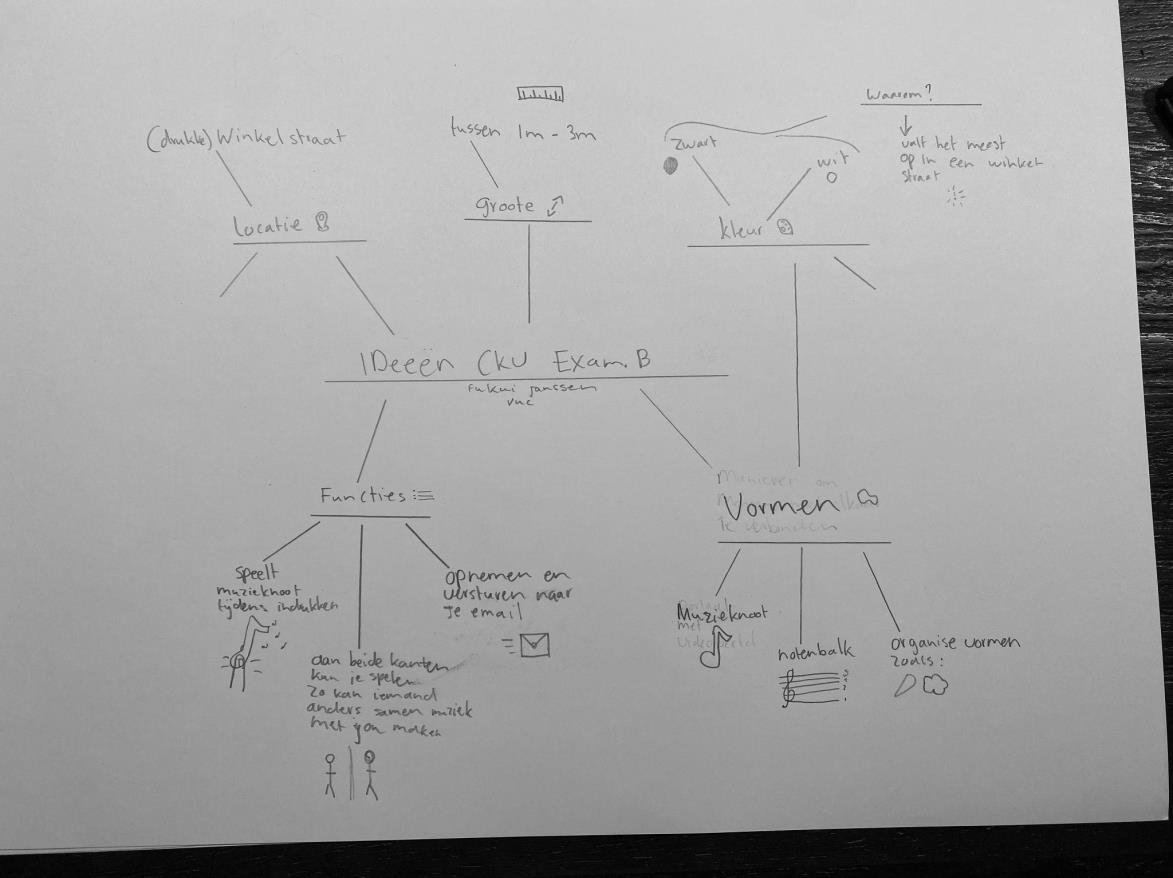 (drukke) Winkelstraat
Locatie
tussen 1m - 3m
groote
zwart
wit
kleur
Waarom?
valt het meest
op in een winkel
straat
IDeeën CKU Exam. B
Fukui Janssen
Functies
speelt
muzieknoot
tijdens indrukken
aan beide kanten
kan je spelen
Zo kan iemand
anders samen muziek
met jou maken
opnemen en
versturen naar
je email
Manieren om
Vormen
Te verbinden
Muzieknoot
met
notenbalk
organise vormen
zoals: